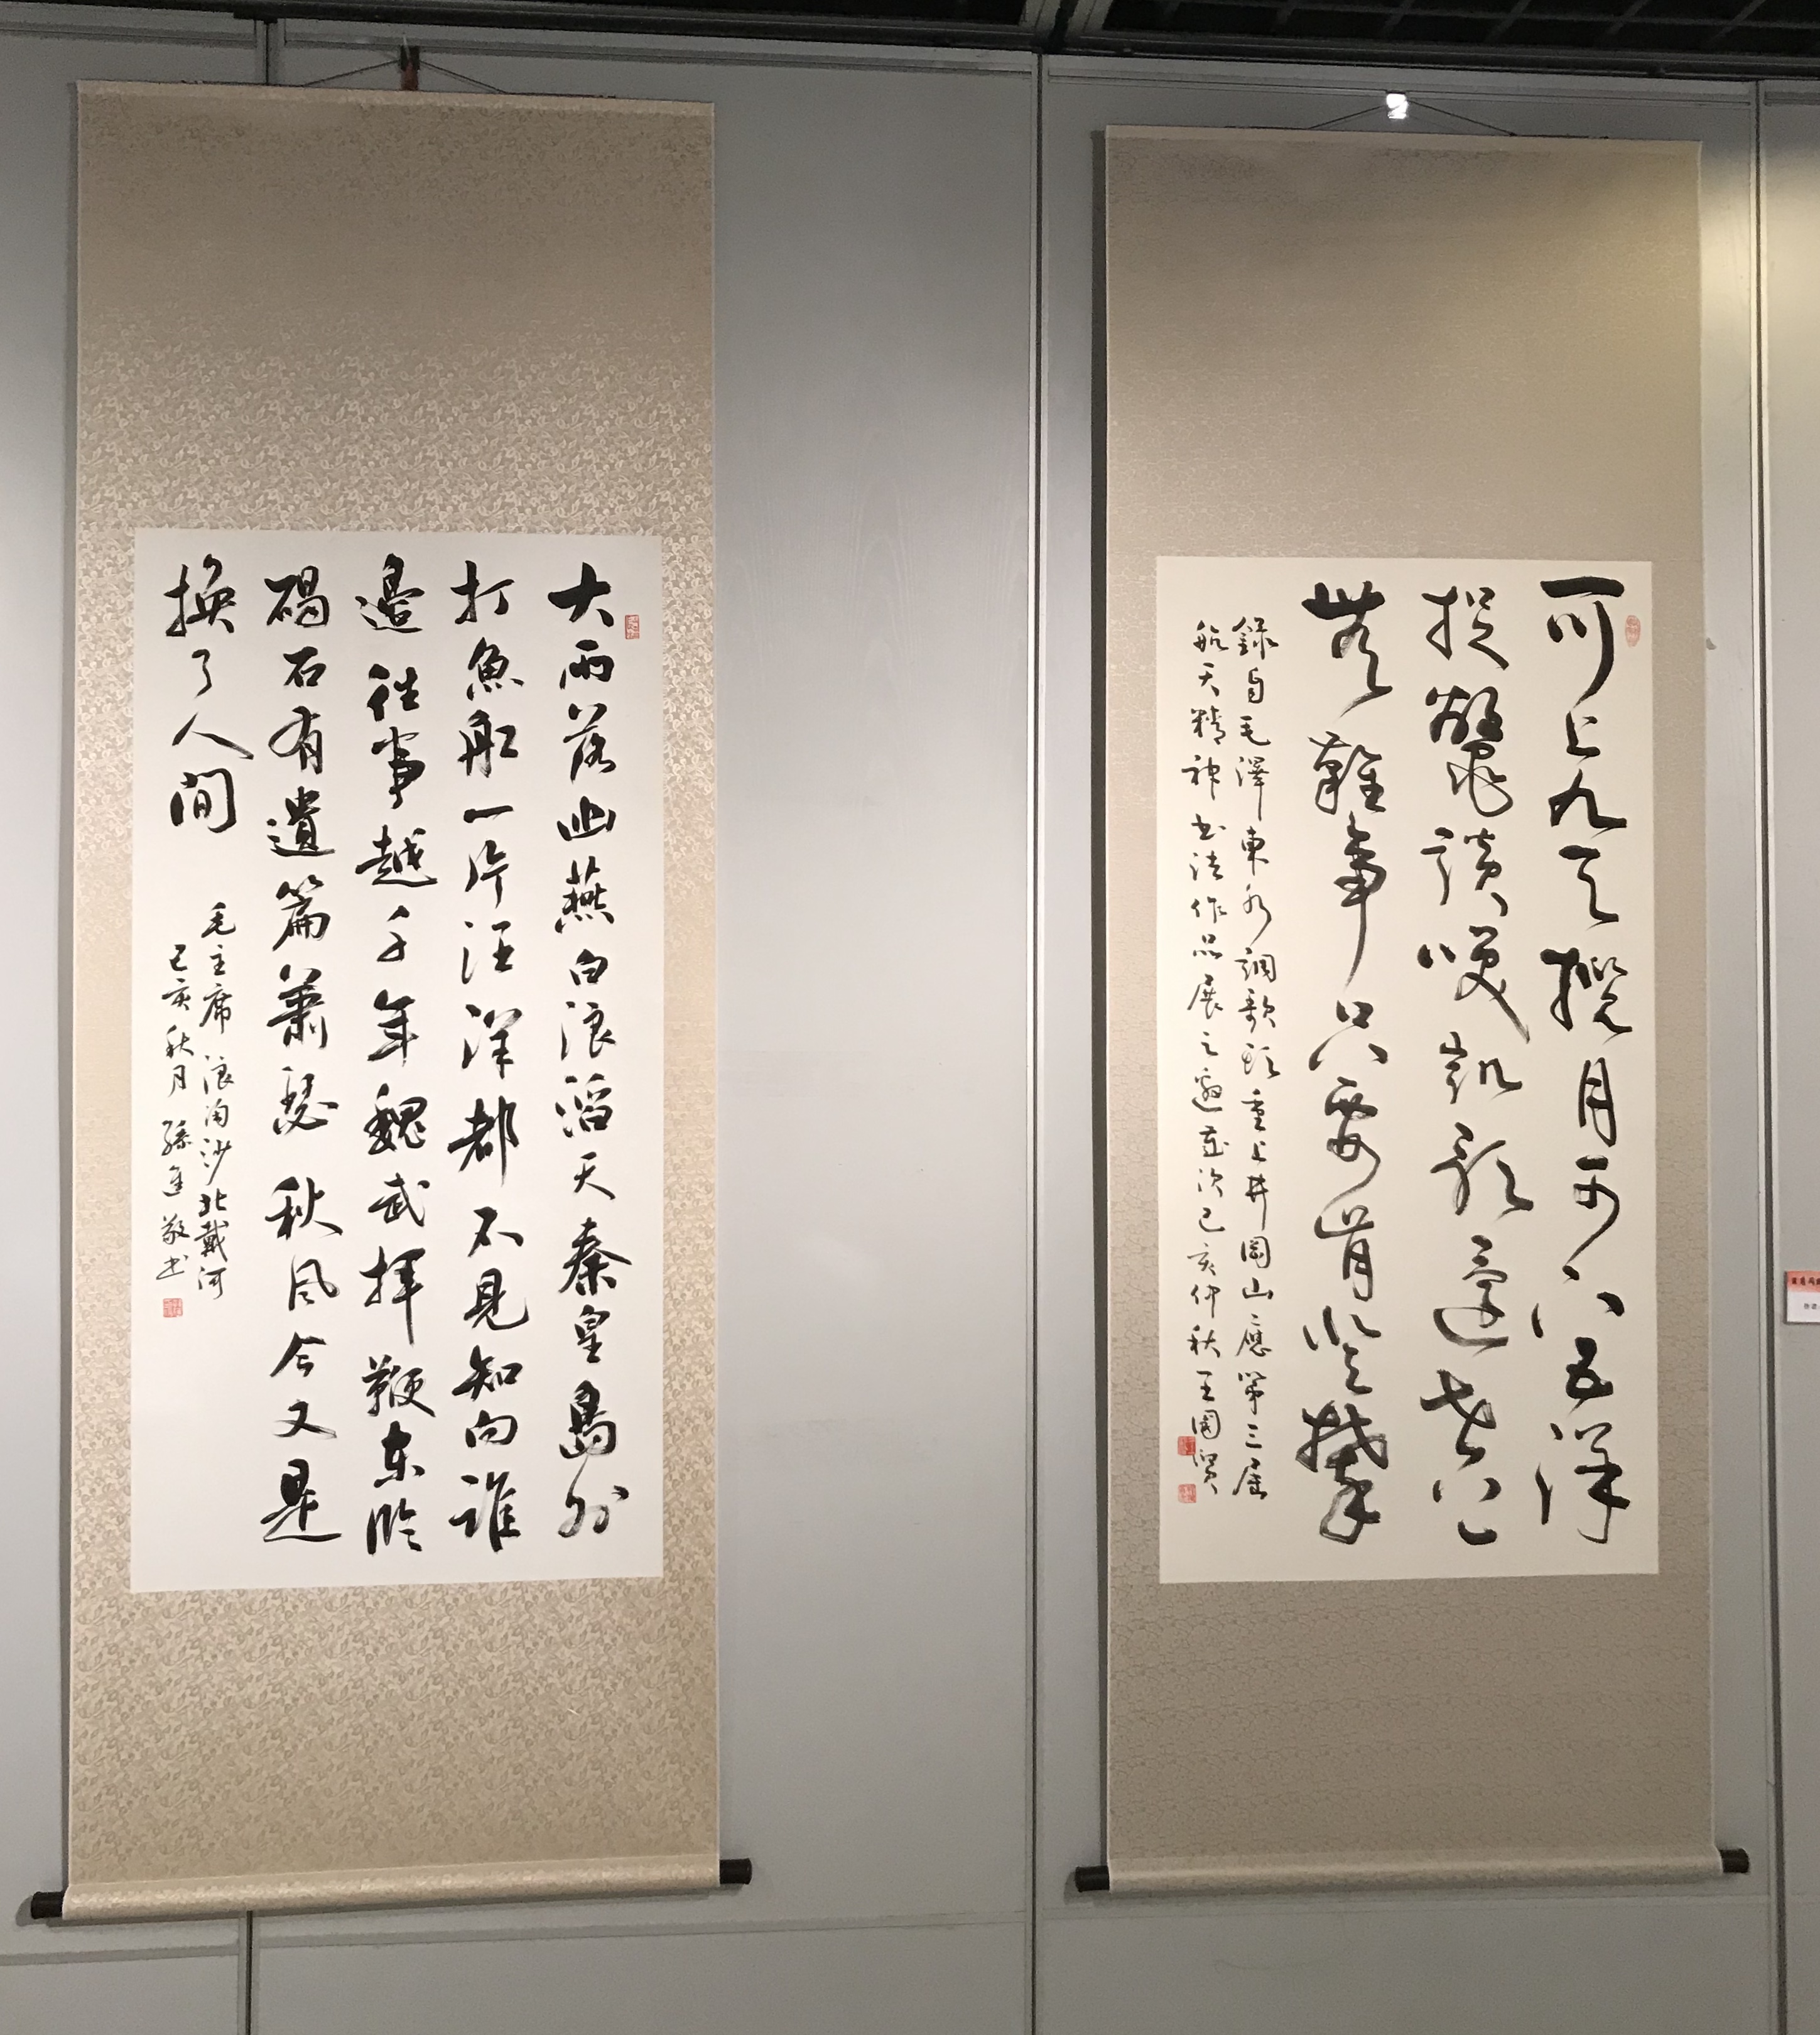 大雨落幽燕白浪滔天秦皇島外
打魚船一片汪洋都不見知向誰
邊往事越千年魏武揮鞭東臨
碣石有遺篇蕭瑟秋風今又是
換了人間
毛主席浪淘沙北戴河
己亥秋月孫進敬書
可上九天攬月可下五洋
捉鱉談笑凱歌還世上
無難事只要肯登攀
錄自毛澤東水調歌頭重上井岡山應第三屆
航天精神書法作品展之邀 次己亥仲秋王國賢